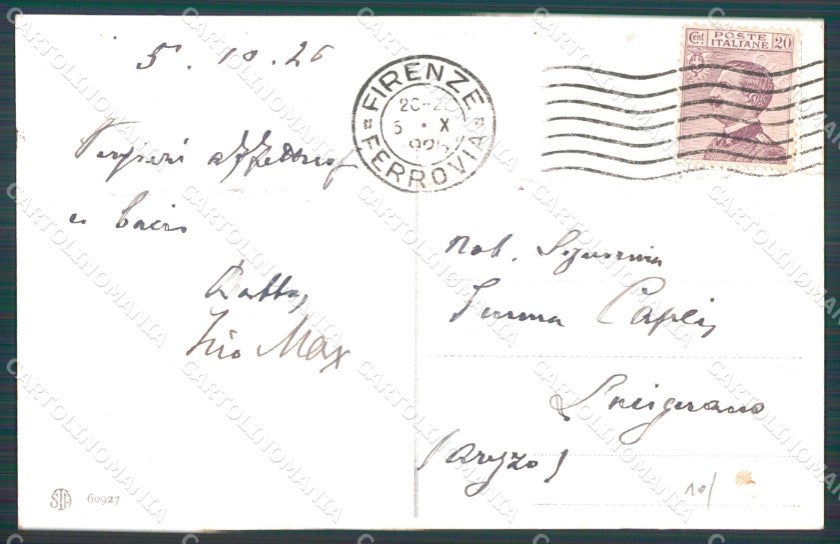 5. 10. 26
Pensieri affettuosi
e baci
Zio Max
FIRENZE
20-2
5 • X
FERROVIA
Cent POSTE ITALIANE 20
Nob. Signorina
Emma Capei
Lucignano
(Arezzo)
STA 60927
10/
CARTOLINOMANIA